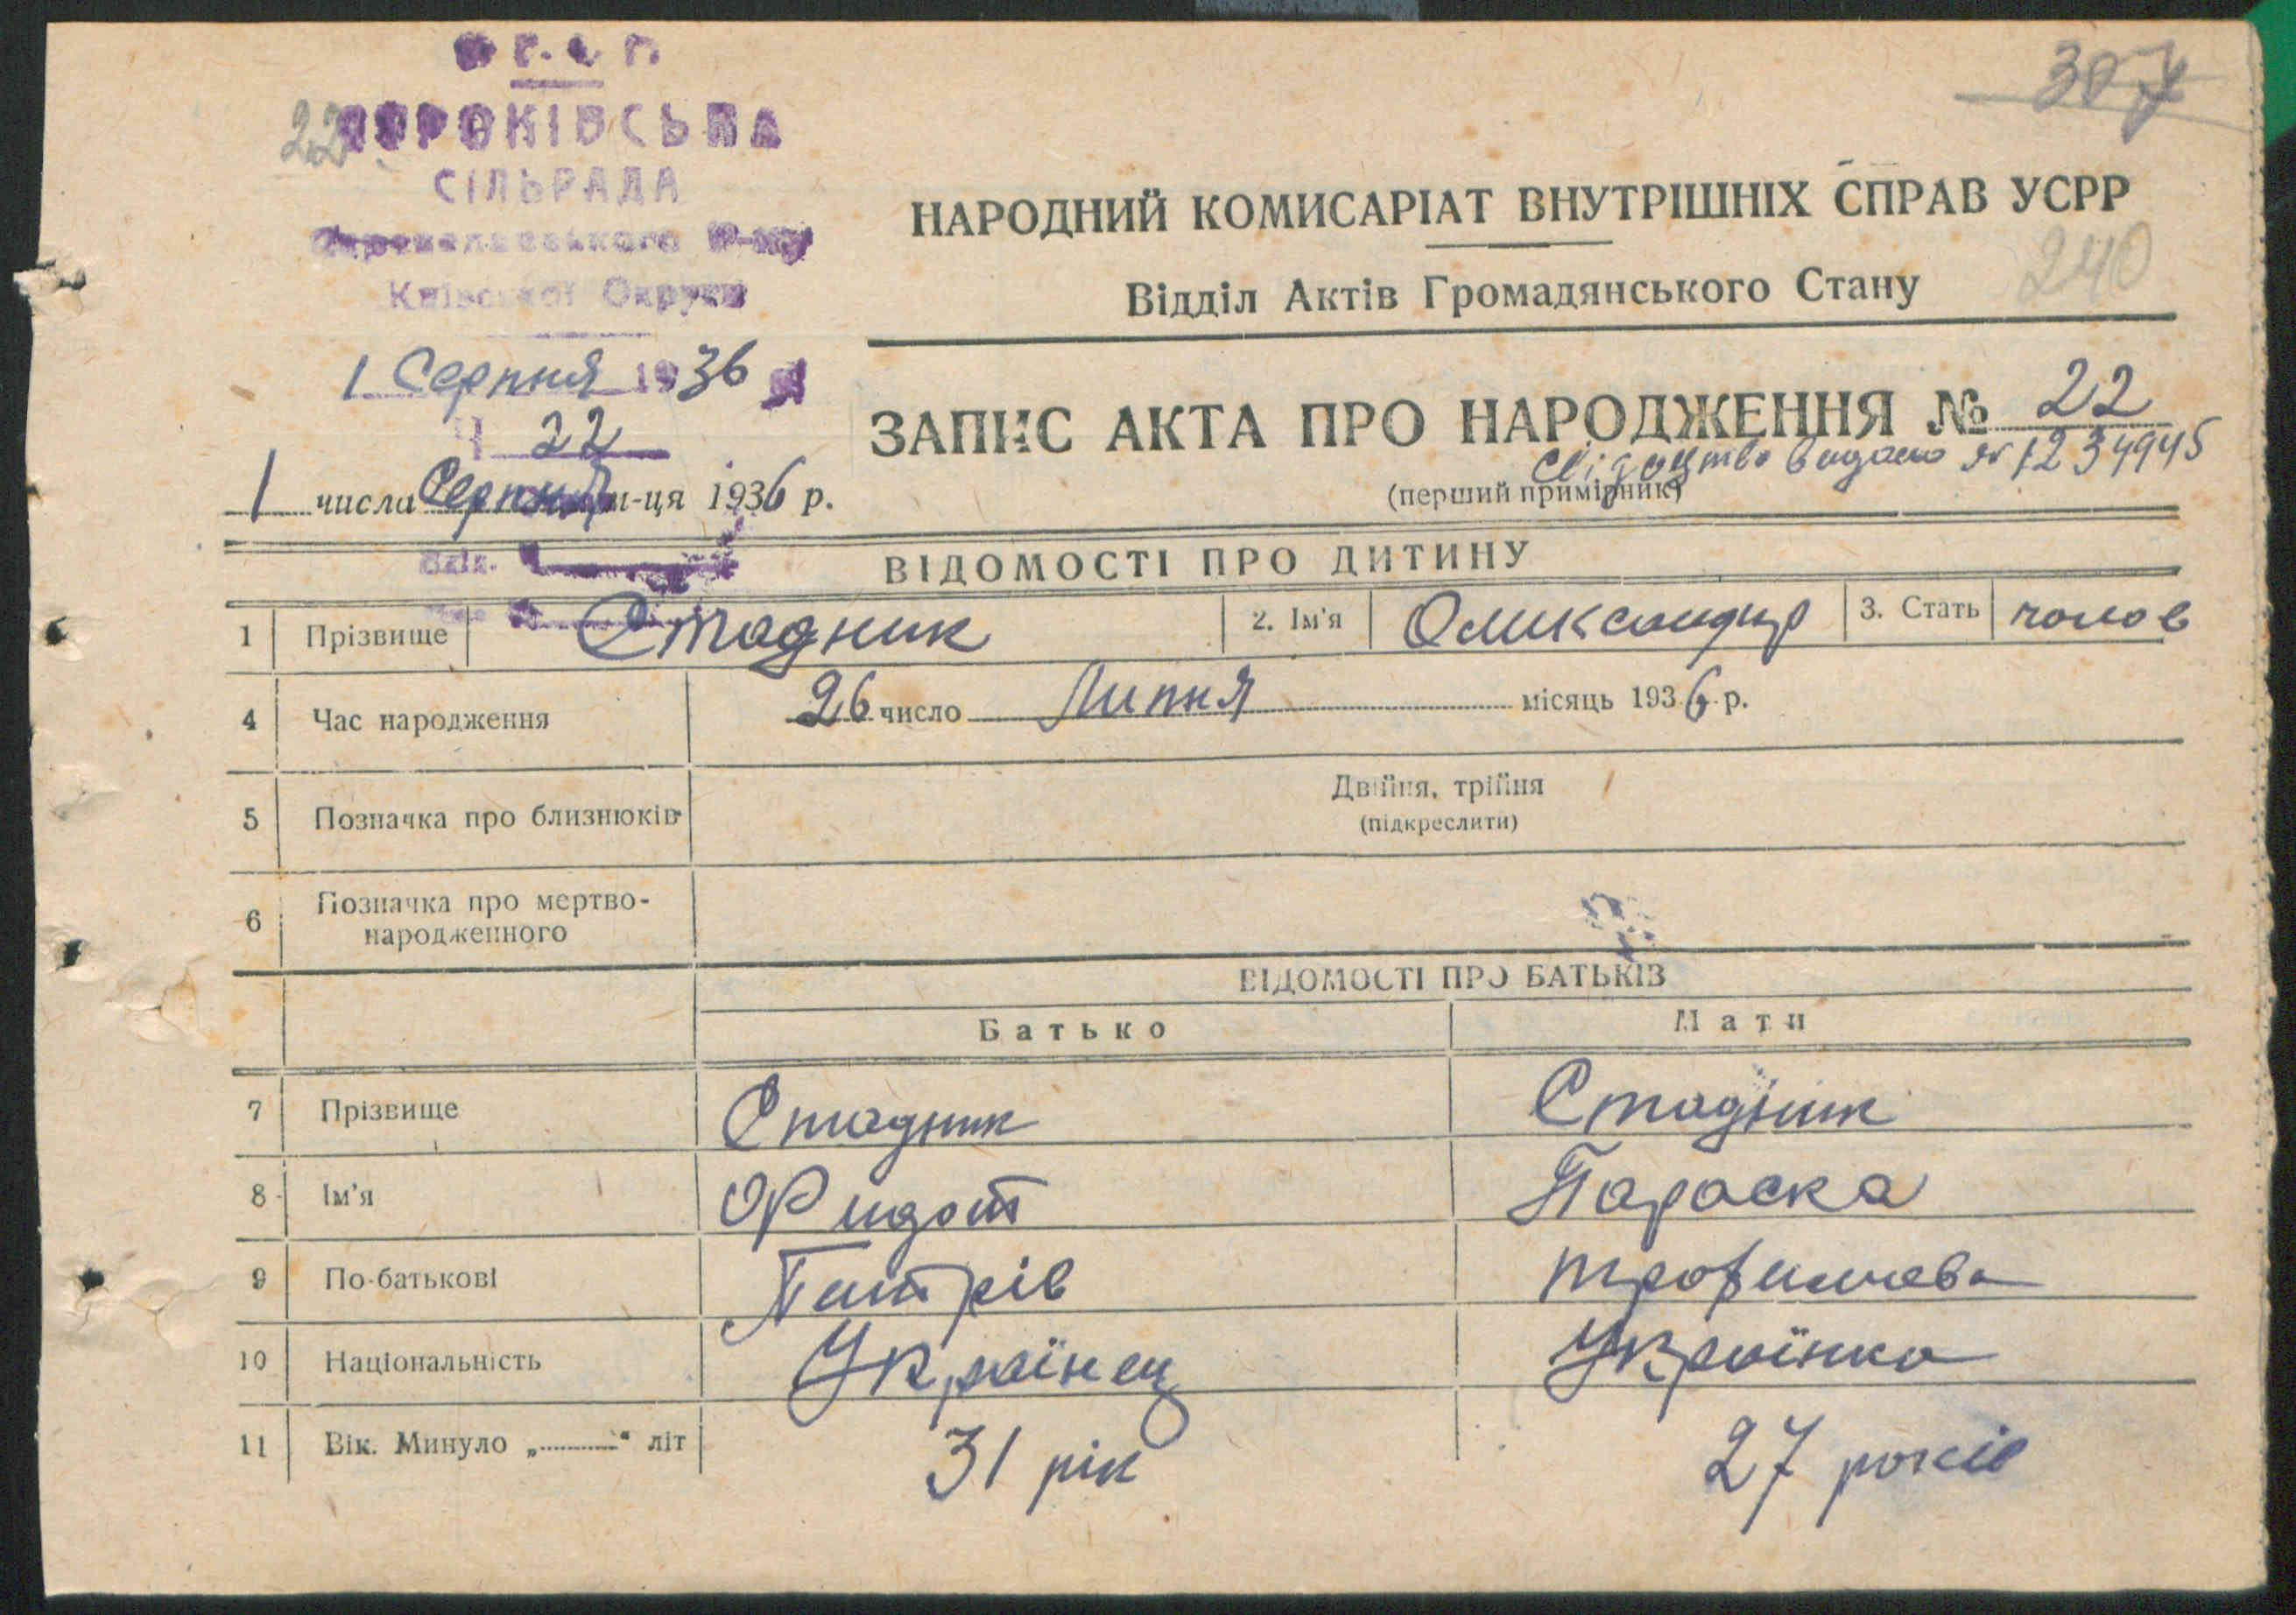 307
22
СІЛЬРАДА
Київської Округи
НАРОДНИЙ КОМИСАРІАТ ВНУТРІШНІХ СПРАВ УСРР
240
Відділ Актів Громадянського Стану
1 Серпня 1936
Ч 22
ЗАПИС АКТА ПРО НАРОДЖЕННЯ № 22
Свідоцтво видано № 1234945
(перший примірник)
1 числа Серпня м-ця 1936 р.
ВІДОМОСТІ ПРО ДИТИНУ
1 Прізвище Стадник 2. Ім'я Олександр 3. Стать чолов
4 Час народження 26 число Липня місяць 1936 р.
5 Позначка про близнюків Двійня, трійня
(підкреслити)
6 Позначка про мертво-
народженного
ВІДОМОСТІ ПРО БАТЬКІВ
Батько Мати
7 Прізвище Стадник Стадник
8 Ім'я Фидот Параска
9 По-батькові Питрів Трофимова
10 Національність Українец Українка
11 Вік. Минуло „ " літ 31 рік 27 років